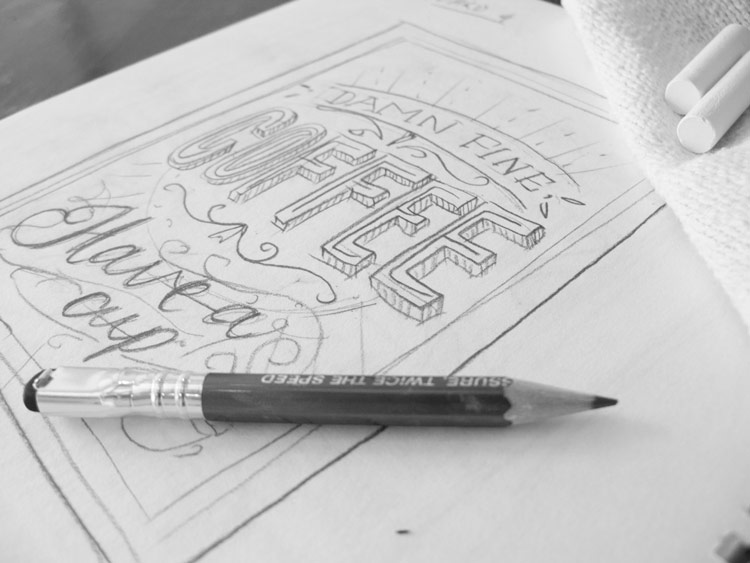 DAMN FINE
COFFEE
Have a
cup
SSURE, TWICE THE SPEED